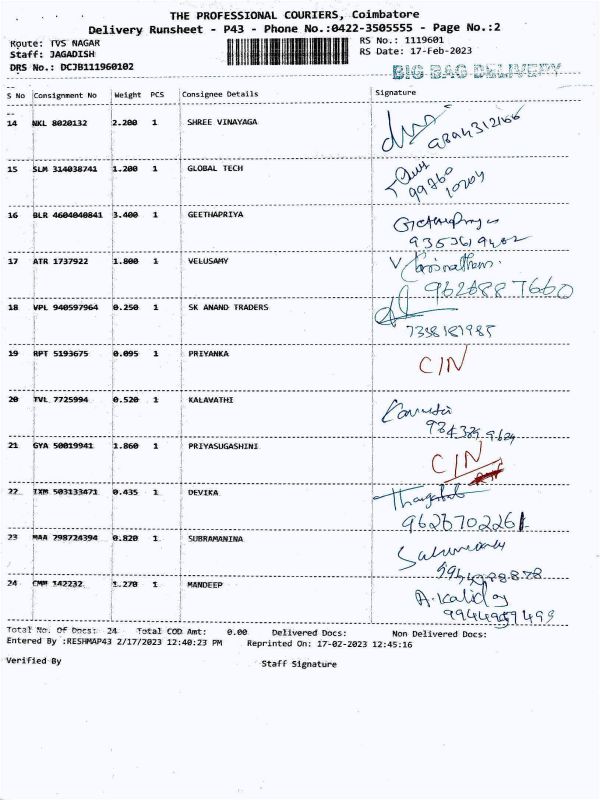 THE PROFESSIONAL COURIERS, Coimbatore
Delivery Runsheet - P43 - Phone No.:0422-3505555 - Page No.:2
Route: TVS NAGAR RS No.: 1119601
Staff: JAGADISH RS Date: 17-Feb-2023
DRS No.: DCJB111960102
BIG BAG DELIVERY
S No Consignment No Weight PCS Consignee Details Signature
14 NKL 8020132 2.200 1 SHREE VINAYAGA
15 SLM 314038741 1.200 1 GLOBAL TECH
99760
10204
16 BLR 4604040841 3.400 1 GEETHAPRIYA
17 ATR 1737922 1.800 1 VELUSAMY
9626887660
18 VPL 940597964 0.250 1 SK ANAND TRADERS
7338181985
19 RPT 5193675 0.095 1 PRIYANKA C/N
20 TVL 7725994 0.520 1 KALAVATHI
21 GYA 50019941 1.860 1 PRIYASUGASHINI C/N
22 IXM 503133471 0.435 1 DEVIKA
23 MAA 298724394 0.820 1 SUBRAMANINA
24 CMM 142232 1.270 1 MANDEEP
Total No. Of Docs: 24 Total COD Amt: 0.00 Delivered Docs: Non Delivered Docs:
Entered By :RESHMAP43 2/17/2023 12:40:23 PM Reprinted On: 17-02-2023 12:45:16
Verified By Staff Signature